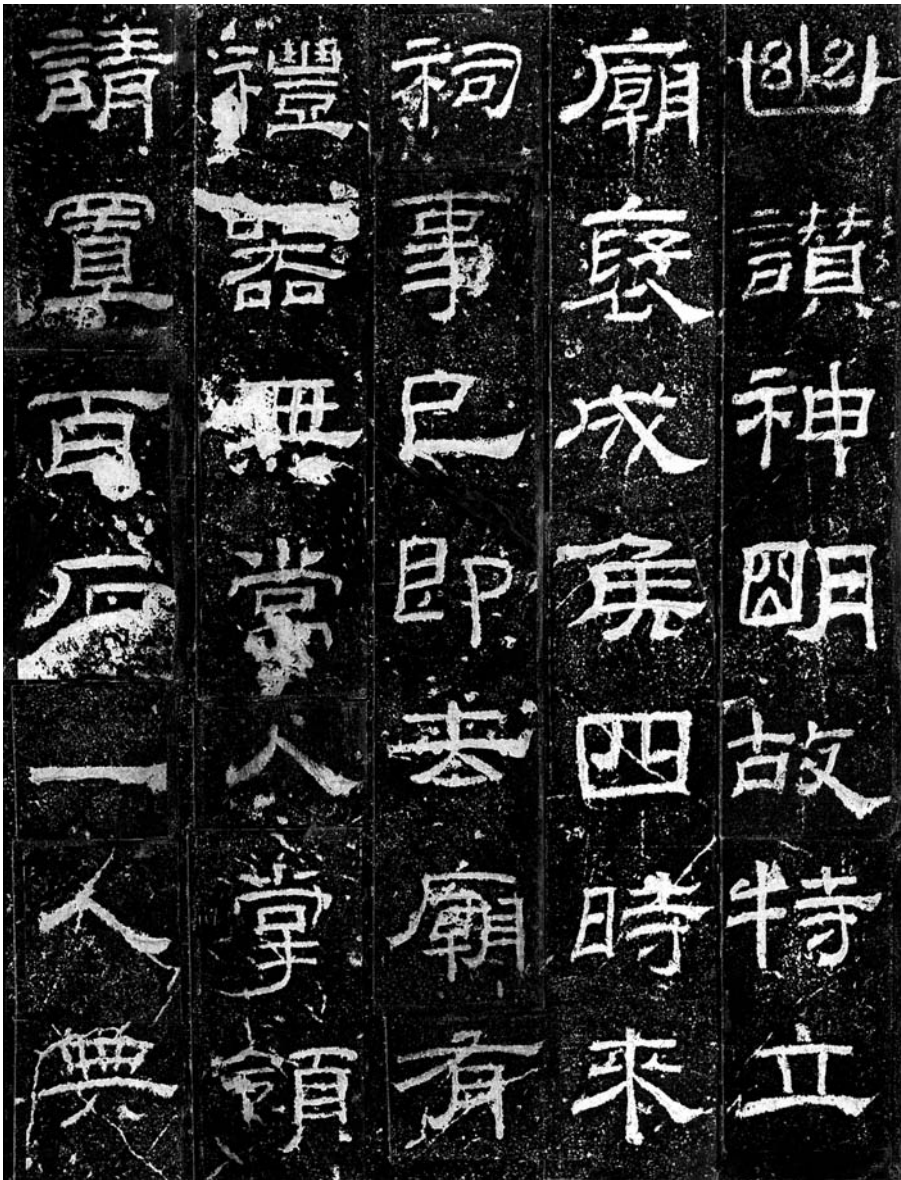 幽讃神明故特立
廟褒成侯四時來
祠事已即去廟有
禮器無常人掌領
請置百石一人典